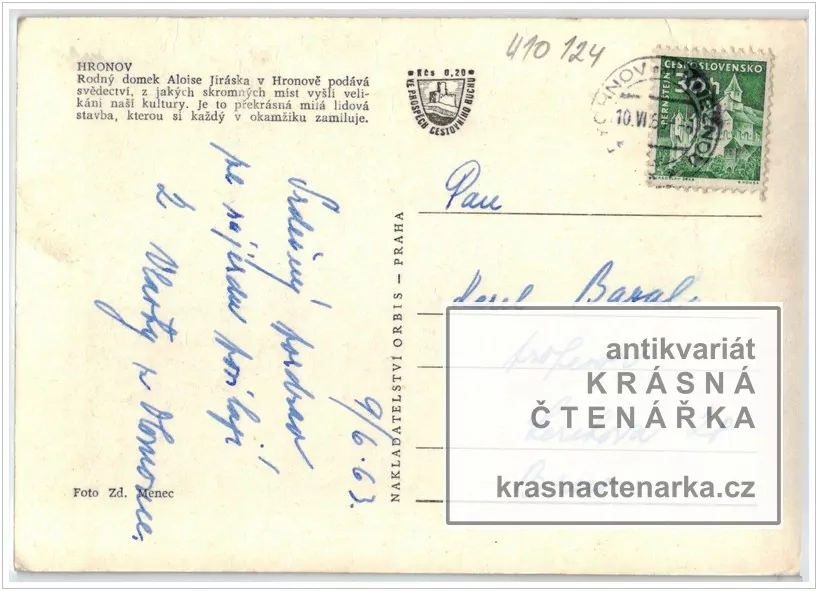 410 124
HRONOV
Rodný domek Aloise Jiráska v Hronově podává
svědectví, z jakých skromných míst vyšli veli-
káni naší kultury. Je to překrásná milá lidová
stavba, kterou si každý v okamžiku zamiluje.
Kčs 0,20
VE PROSPĚCH CESTOVNÍHO RUCHU
HRONOV
10.VI.6
ČESKOSLOVENSKO
30h
PERNŠTEJN
9/6.63.
Srdečný pozdrav
ze zájezdu posílají
Z
NAKLADATELSTVÍ ORBIS – PRAHA
Pan
Karel
antikvariát
KRÁSNÁ
ČTENÁŘKA
krasnactenarka.cz
Foto Zd. Menec